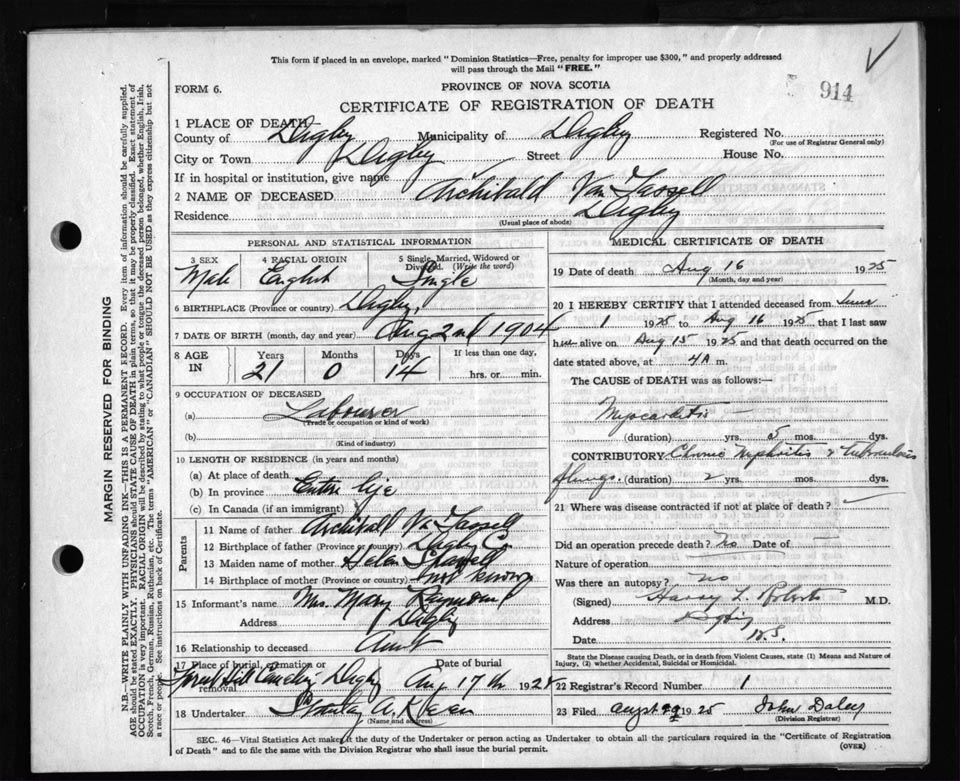 This form if placed in an envelope, marked "Dominion Statistics—Free, penalty for improper use $300," and properly addressed
will pass through the Mail "FREE."
914
FORM 6.
PROVINCE OF NOVA SCOTIA
CERTIFICATE OF REGISTRATION OF DEATH
1 PLACE OF DEATH
County of Digby Municipality of Digby Registered No.
(For use of Registrar General only)
City or Town Digby Street House No.
If in hospital or institution, give name
2 NAME OF DECEASED Archibald Van Tassell
Residence Digby
(Usual place of abode)
PERSONAL AND STATISTICAL INFORMATION
3 SEX 4 RACIAL ORIGIN 5 Single, Married, Widowed or Divorced. (Write the word)
Male English Single
6 BIRTHPLACE (Province or country) Digby,
7 DATE OF BIRTH (month, day and year) Aug 2nd 1904
8 AGE IN Years Months Days If less than one day,
21 0 14 hrs. or min.
9 OCCUPATION OF DECEASED
(a) Labourer
(Trade or occupation or kind of work)
(b)
(Kind of industry)
10 LENGTH OF RESIDENCE (in years and months)
(a) At place of death
(b) In province Entire life
(c) In Canada (if an immigrant)
Parents
11 Name of father Archibald Van Tassell
12 Birthplace of father (Province or country) Digby Co
13 Maiden name of mother Helen
14 Birthplace of mother (Province or country) not known
15 Informant's name Mrs. Mary Raymond
Address Digby
16 Relationship to deceased Aunt
17 Place of burial, cremation or removal Date of burial
Forest Hill Cemetery Digby Aug 17th 1925
18 Undertaker Stanley A.
(Name and address)
MEDICAL CERTIFICATE OF DEATH
19 Date of death Aug 16 1925
(Month, day and year)
20 I HEREBY CERTIFY that I attended deceased from June
1 1925 to Aug 16 1925 that I last saw
him alive on Aug 15 1925 and that death occurred on the
date stated above, at 4A m.
The CAUSE of DEATH was as follows:—
Myocarditis —
(duration) yrs. 5 mos. dys.
CONTRIBUTORY Chronic Nephritis & tuberculosis
of lungs. (duration) 2 yrs. mos. dys.
21 Where was disease contracted if not at place of death?
Did an operation precede death? no Date of —
Nature of operation
Was there an autopsy? no
(Signed) Harry L. Roberts M.D.
Address Digby
N.S.
Date
State the Disease causing Death, or in death from Violent Causes, state (1) Means and Nature of
Injury, (2) whether Accidental, Suicidal or Homicidal.
22 Registrar's Record Number 1
23 Filed August 1925 John Daley
(Division Registrar)
SEC. 46—Vital Statistics Act makes it the duty of the Undertaker or person acting as Undertaker to obtain all the particulars required in the "Certificate of Registration
of Death" and to file the same with the Division Registrar who shall issue the burial permit.
(OVER)
MARGIN RESERVED FOR BINDING
N.B.—WRITE PLAINLY WITH UNFADING INK—THIS IS A PERMANENT RECORD. Every item of information should be carefully supplied.
AGE should be stated EXACTLY. PHYSICIANS should STATE CAUSE OF DEATH in plain terms, so that it may be properly classified. Exact statement of
OCCUPATION is very important. RACIAL ORIGIN will be described by stating to what people or tongue the deceased person belonged, whether English, Irish,
Scotch, French, German, Russian, Ruthenian, etc. The terms "AMERICAN" or "CANADIAN" SHOULD NOT BE USED as they express citizenship but not
a race or people. See instructions on back of Certificate.